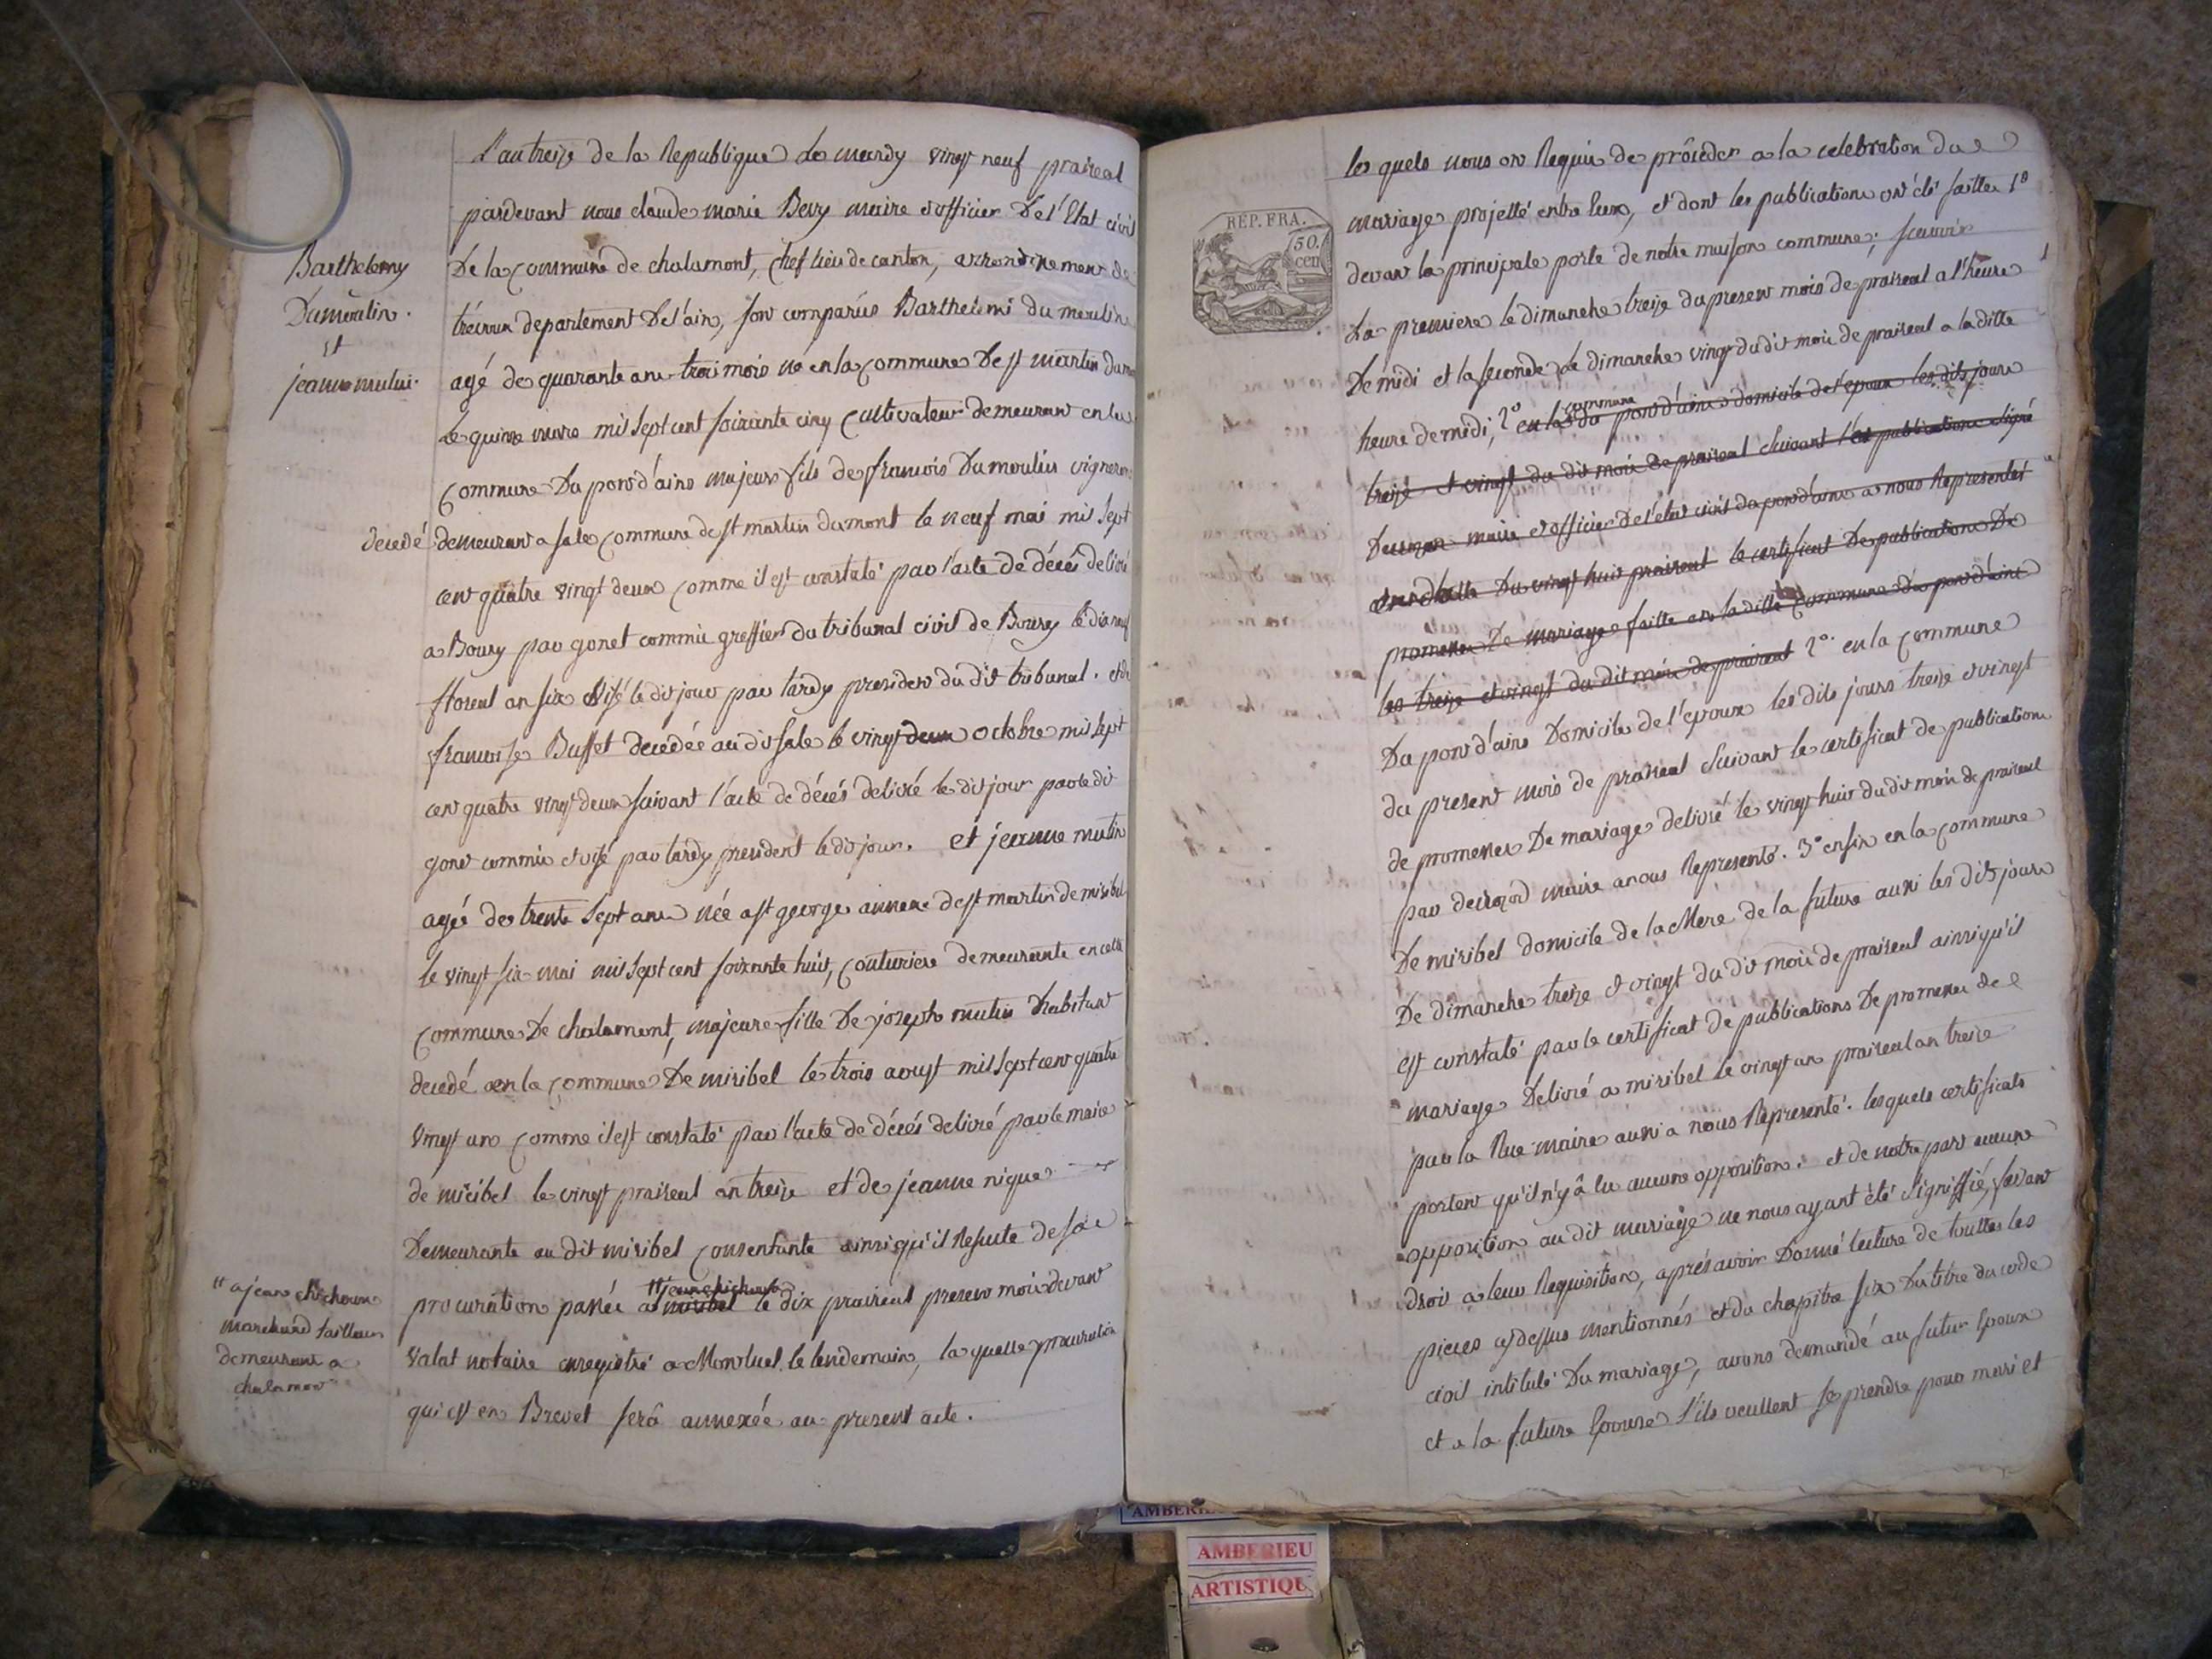 L'an treize de la Republique Le mardy vingt neuf praireal
pardevant nous claude marie Bevy maire et officier De l'Etat civil
De la commune de chalamont, chef lieu de canton, arrondinement de
trévoux departement De l'ain, sont comparus Barthelemi du moulin
agé de quarante ans trois mois né en la commune De st martin du mont
Le quinze mars mil sept cent soixante cinq Cultivateur demeurant en la
Commune Du pont d'ains majeur fils de francois Dumoulin vigneron
decedé demeurant a sale commune de st martin dumont le neuf mai mil sept
cent quatre vingt deux comme il est constaté par l'acte de décés delivré
a Bourg par gonet commis greffier du tribunal civil de Bourg le dix neuf
floreal an six visé le dit jour par tardy president du dit tribunal. et de
francoise Buffet decedée au dit sale le vingt deux octobre mil sept
cent quatre vingt deux suivant l'acte de décés delivré le dit jour par le dit
gonet commis et visé par tardy president le dit jour. et jeanne mutin
agée de trente sept ans née a st george annexe de st martin de miribel
le vingt six mai mil sept cent soixante huit, couturiere demeurante en cette
commune De chalamont, majeure fille De joseph mutin habitant
decedé en la commune De miribel le trois aoust mil sept cent quatre
vingt un comme il est constaté par l'acte de décés delivré par le maire
de miribel le vingt praireal an treize et de jeanne nique
Demeurante au dit miribel consentante ainsi qu'il Resulte de sa
jean chichoux
procuration passée a miribel le dix praireal present mois devant
valat notaire enregistré a Montluel le lendemain, la quelle procuration
qui est en Brevet serâ annexée au present acte.
Barthelemy
Dumoulin.
et
jeanne mutin.
a jean chichoux
marchand tailleur
demeurant a
chalamont
REP. FRA.
50.
cen
les quels nous ont Requis de procéder a la celebration du
mariage projetté entre Eux, et dont les publications ont été faittes 1°
devant la principale porte de notre maison commune; scavoir
La premiere le dimanche treize du present mois de praireal a l'heure
De midi et la seconde le dimanche vingt du dit mois de praireal a la ditte
commune
heure de midi, 2° en la du pont d'ains domicile de l'epoux les dits jours
treize et vingt du dit mois de praireal suivant l'et publications signé
maire et officier de l'etat civil du pont d'ains a nous Representés
Du vingt huit praireal le certificat De publications De
promesses De mariage faitte en la ditte commune du pont d'ains
les treize et vingt du dit mois de praireal 2°. en la commune
Du pont d'ains Domicile de l'epoux les dits jours treize et vingt
du present mois de praireal suivant le certificat de publications
de promesses De mariage delivré le vingt huit du dit mois de praireal
par maire a nous Representé. 3° enfin en la commune
De miribel domicile de la Mere de la future aussi les dits jours
De dimanche treize et vingt du dit mois de praireal ainsi qu'il
est constaté par le certificat de publications De promesses de
mariage Delivré a miribel le vingt un praireal an treize
par la Rue maire aussi a nous Representé. lesquels certificats
portent qu'il n'y â eu aucune opposition. et de notre part aucune
opposition au dit mariage ne nous ayant été signiffié, faisant
droit a leur Requisition, aprés avoir Donné lecture de touttes les
pieces cydessus mentionnés et du chapitre six Du titre du code
civil intitulé Du mariage, avons demandé au futur Epoux
et a la future Epouse s'ils veullent se prendre pour mari et
AMBERIEU
ARTISTIQU